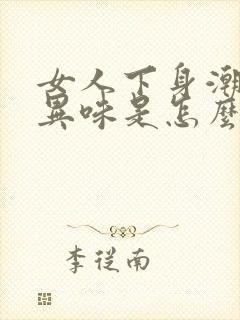 女人下身潮
異味是怎麼
李從南